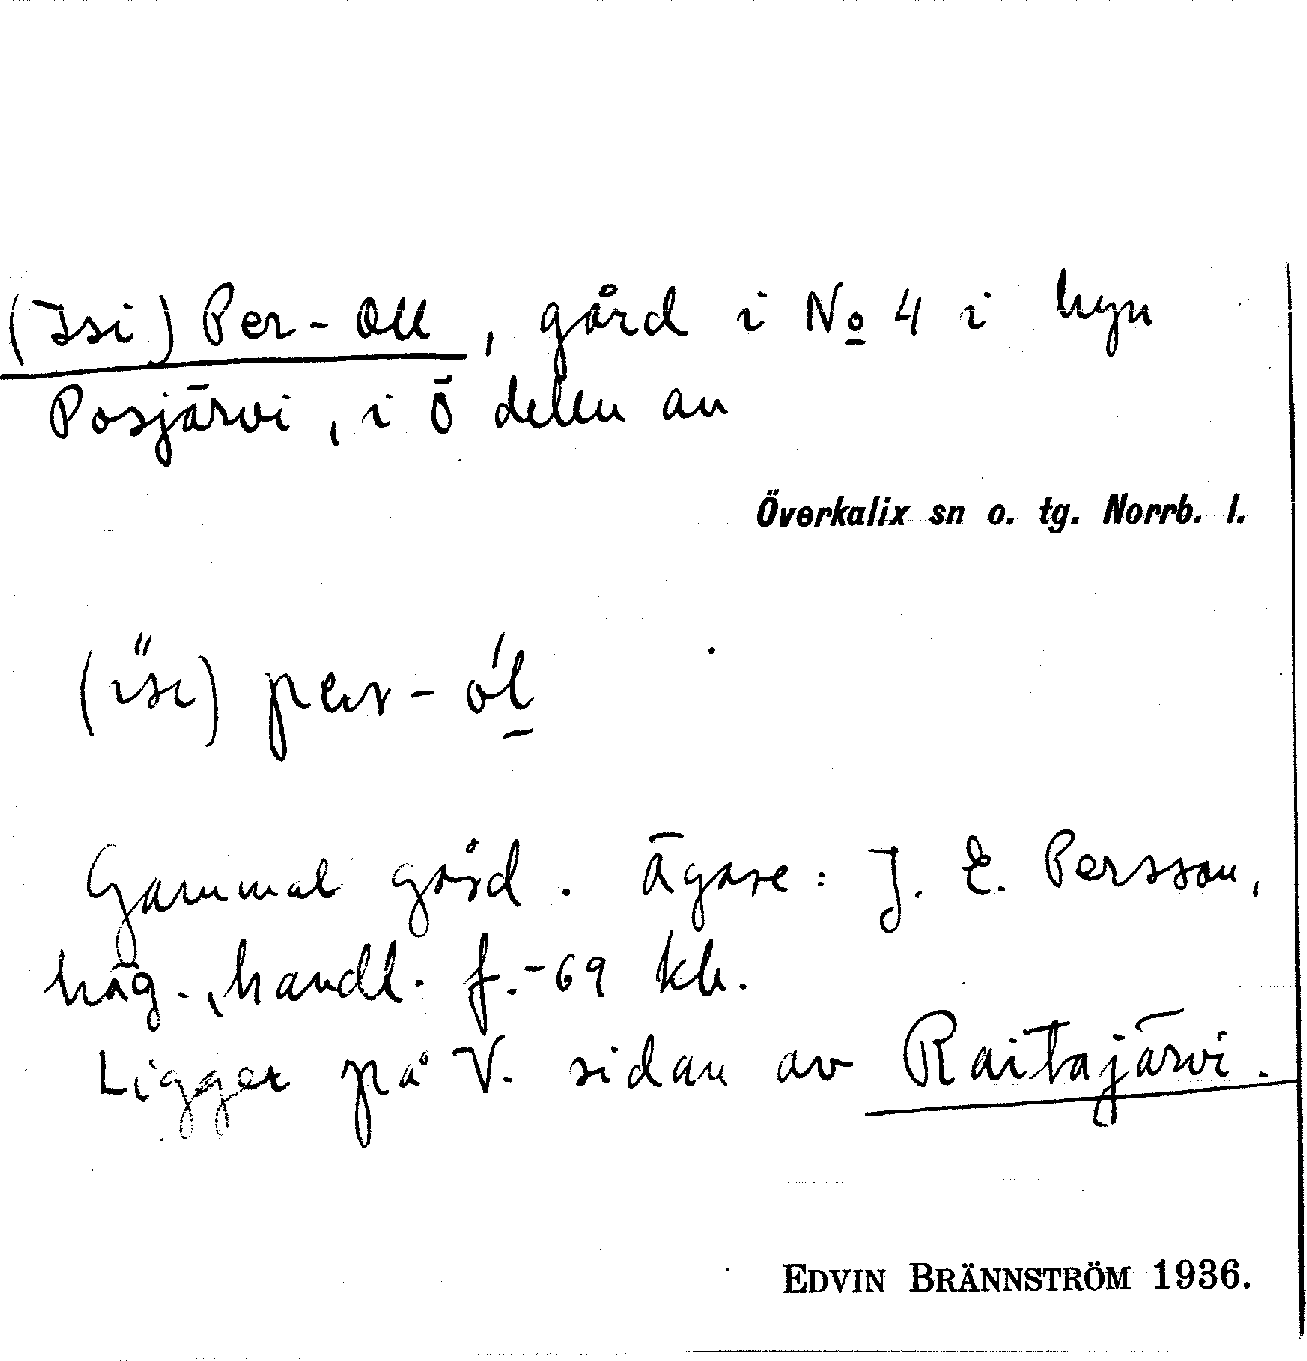 (Isi) Per-Oll, gård i No 4 i byn
Posjärvi, i Ö delen av
Överkalix sn o. tg. Norrb. l.
(i̋si) per-ól̲
Gammal gård. Ägare: J. E. Persson,
häg., handl. f.-69 kb.
Ligger på V. sidan av Raitajärvi.
EDVIN BRÄNNSTRÖM 1936.